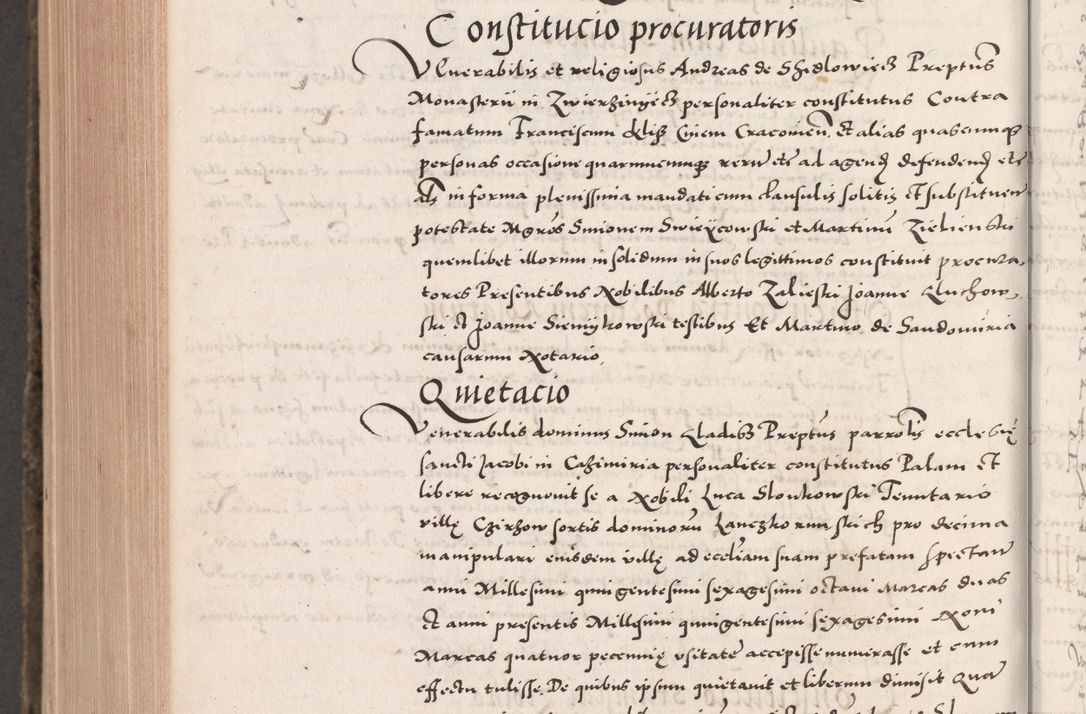 Constitucio procuratoris
Venerabilis et religiosus Andreas de Shidlowiecz Preptus
Monasterii in Zwierzinyecz personaliter constitutus Contra
famatum Franciscum civem Cracovien. Et alias quascunq
personas occasione quarumcunq reru etc ad agend defendend etc
als in forma plenissima mandati cum clausulis solitis et substituen
potestate Mgros Simonem Swieycowski et Martinu Zielienski
quemlibet illorum in solidum in suos legittimos constituit procura
tores Presentibus Nobilibus Alberto Zalieski Joanne Kluchow
ski et Joanne Siemykowski testibus Et Martino de Sandomiria
causarum Notario
Quietacio
Venerabilis dominus Simon Preptus parrolis ecclesię
sancti Jacobi in Cazimiria personaliter constitutus Palam et
libere recognovit se a Nobili Luca Slonkowski Tenutario
villę Czirzow sortis dominoru Lanczkorunskich pro decima
manipulari eiusdem villę ad eccliam suam prefatam spectan
anni Millesimi quingentesimi sexagesimi octavi Marcas duas
Et anni presentis Millesimi quingentesimi sexagesimi Noni
Marcas quatuor pecunię usitate accepisse numerasse et cum
effectu tulisse. De quibus ipsum quietavit et liberum dimisit Quar